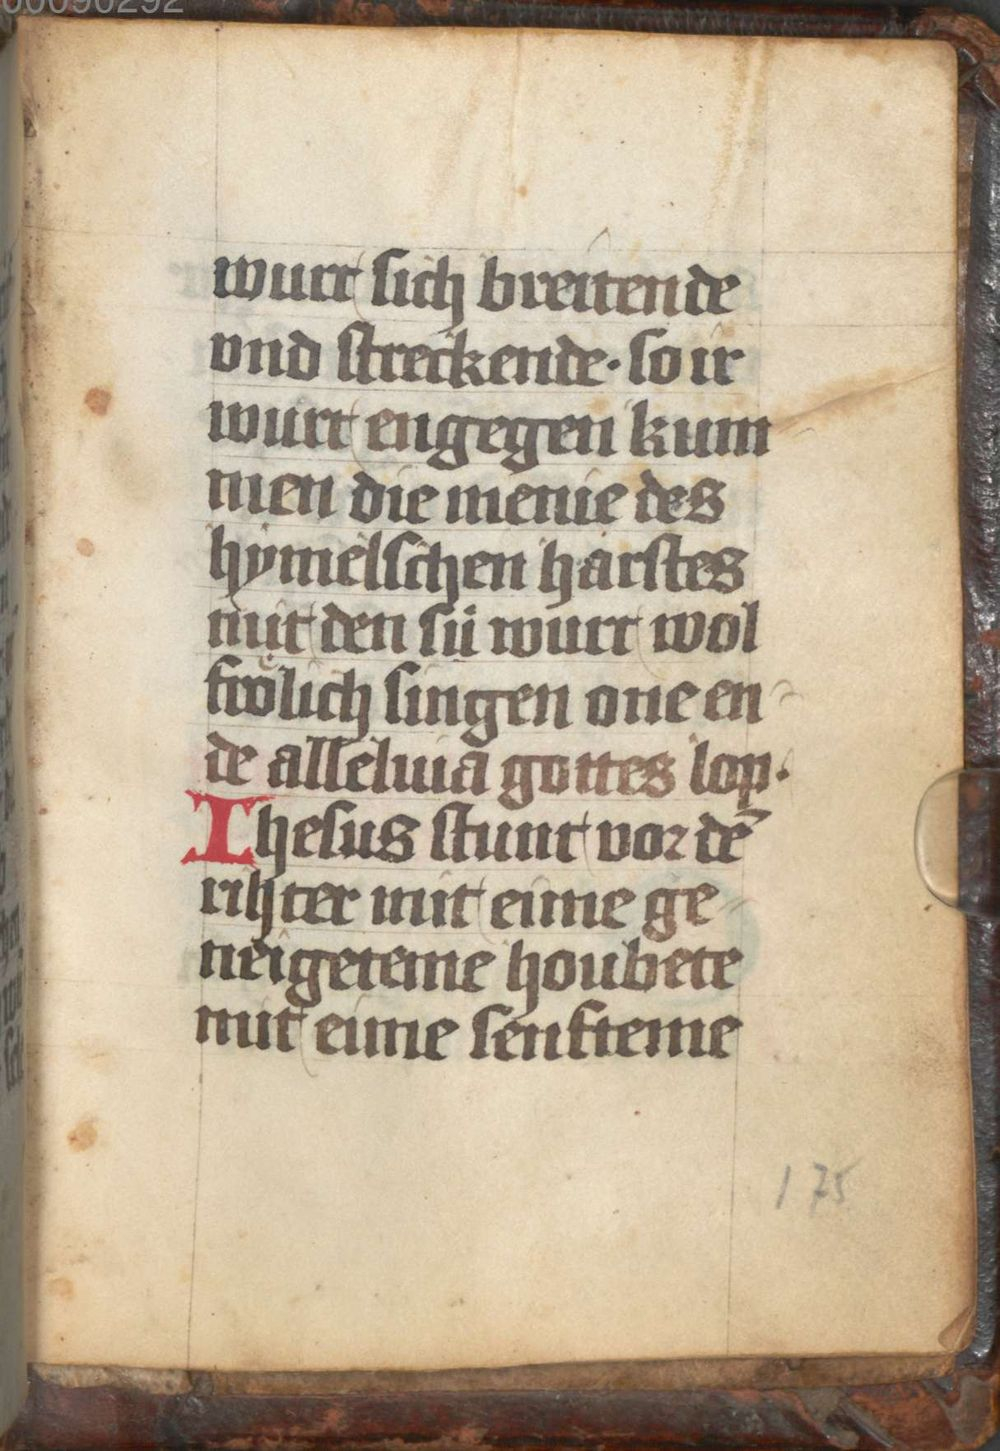 00090292
wurt sich breitende
vnd streckende· so ir
wurt engegen kum
men die menie des
hymelschen harstes
mit den sü wurt wol
frölich singen one en-
de alleluia gottes lop·
Ihesus stunt vor dē
rihter mit eime ge-
neigeteme houbete
mit eime senfteme
175